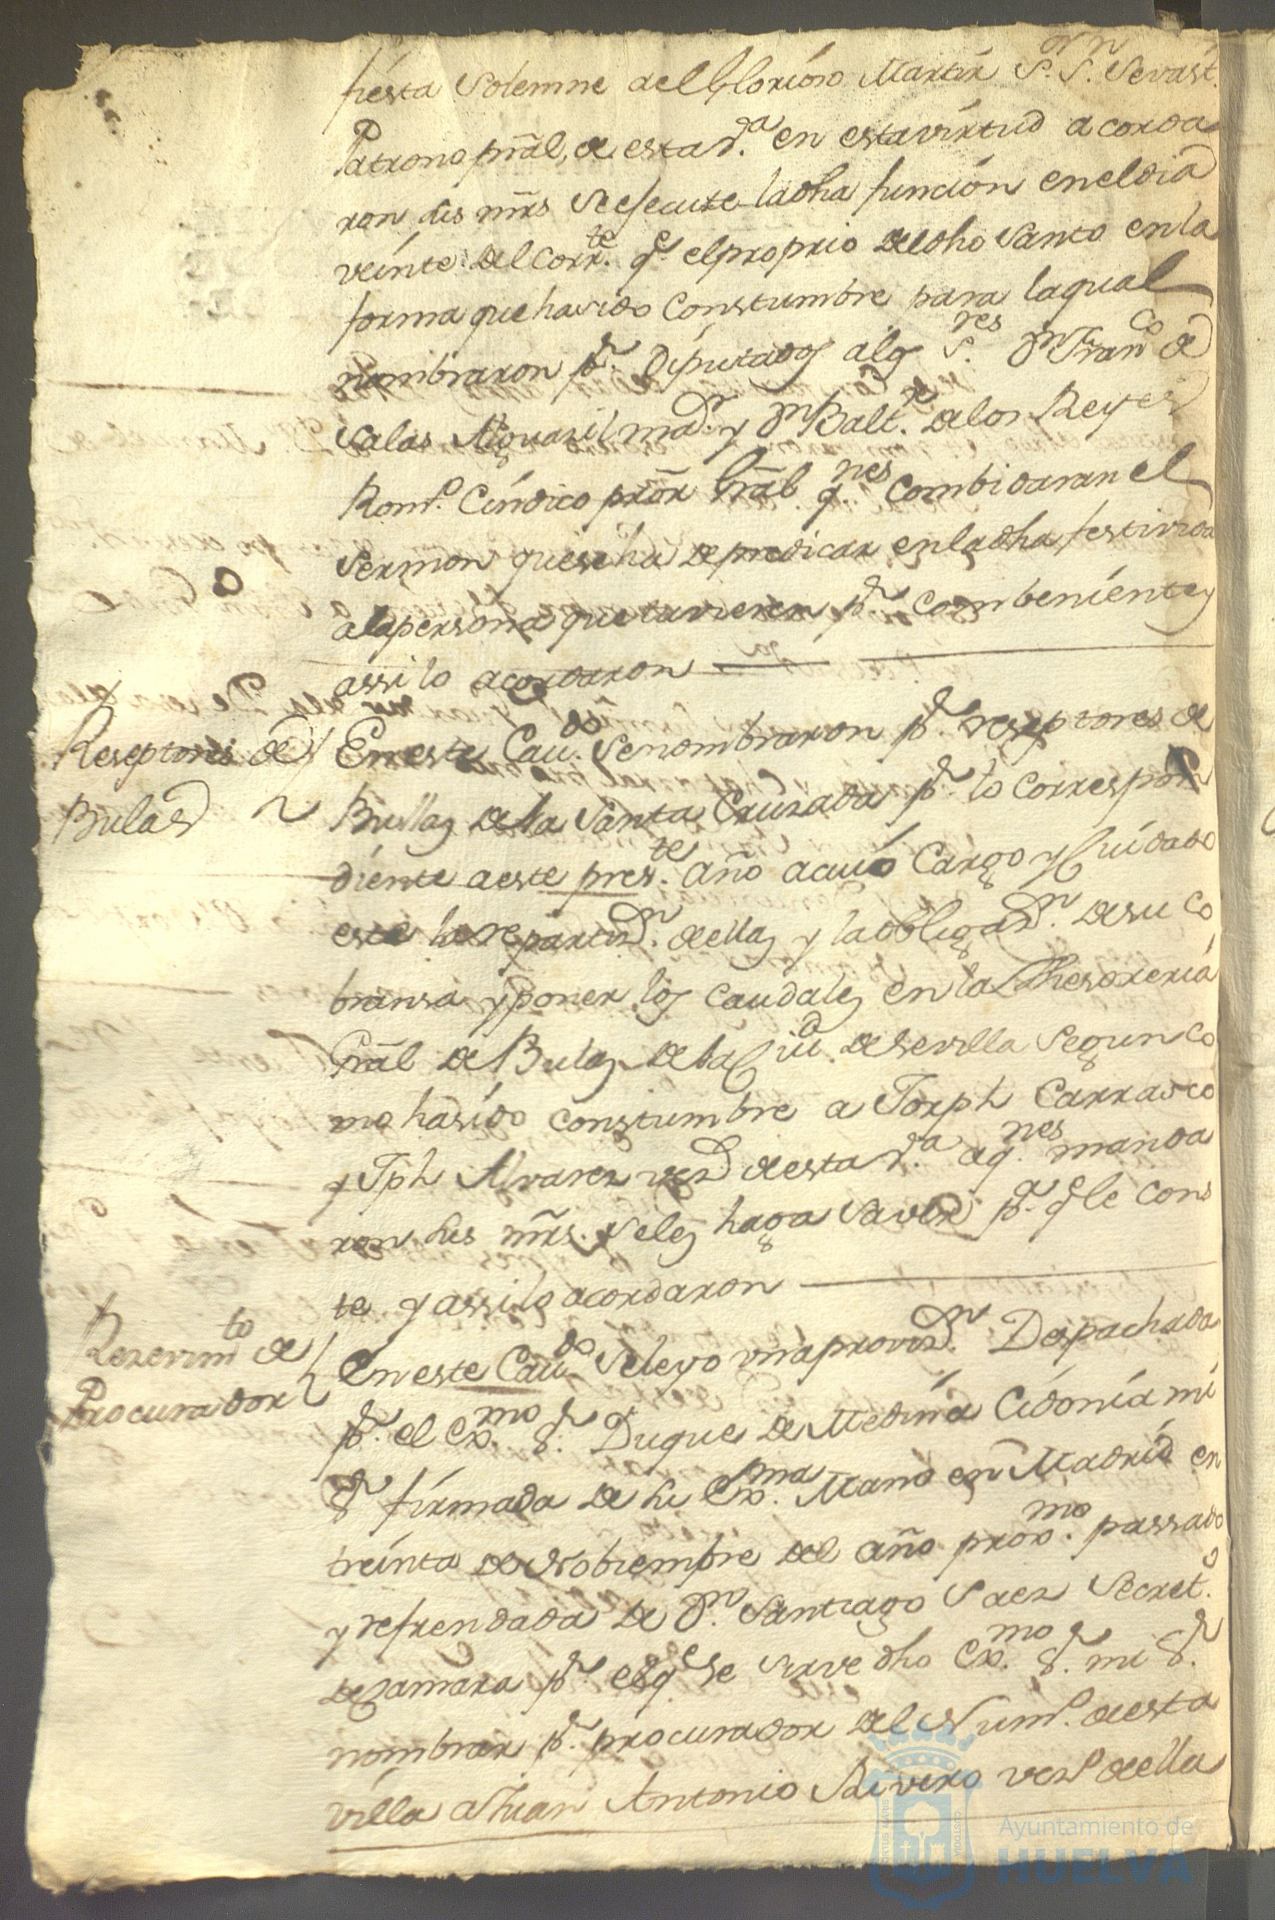 fiesta Solemne del Glorioso Martir S.r S.n Sevast.n
Patrono prãl, de esta v.a en esta virtud acorda
ron sus mrs se efecute la dha función en el dia
veínte del Corr.te q.e el proprio del dho Santo en la
forma que ha sido Constumbre para la qual
nombraron p.r Díputados a los S.res D.n Fran.co de
Salas Alguasil ma.r y D.n Balt.r de los Reyes
Rom.o Cíndico prõr Gräl q.nes Combidaran el
Sermon que se ha de predicar en la dha festivida
a la persona que tuvieren p.r Combeníente y
assi lo acordaron
Reseptores de
Bulas
En este Cau.do Se nombraron p.r reseptores de
Bullas de la Santa Cruzada p.r lo correspon
díente a este pres.te año a cuio Cargo y Cuídado
este la repartiz.n de ellas y la obligaz.n de su co
bransa y poner los caudales en la Thesorería
Grãl de Bulas de la Ciu.d de Sevilla Segun co
mo ha sído constumbre a Joseph Carrasco
y Jph Alvarez vez.s de esta v.a a q.nes manda
ron sus mrs. se les haga saver p.a q.e le cons
te y assi lo acordaron
Rezevim.to de
Procurador
En este Cau.do Se leyo vna proviz.n Despachada
p.r el Ex.mo S.r Duque de Medína Cidonía mí
S.r fírmada de su Ex.ma Mano en Madríd en
treínta de Nobiembre del año prox.mo passado
y refrendada de D.n Santiago Saez Secret.o
de Camara p.r el q.e se sirve dho Ex.mo S.r mi S.r
nombrar p.r procurador del Num.o de esta
vílla a Juan Antonio Rivero vez.o de ella
Ayuntamiento de
HUELVA